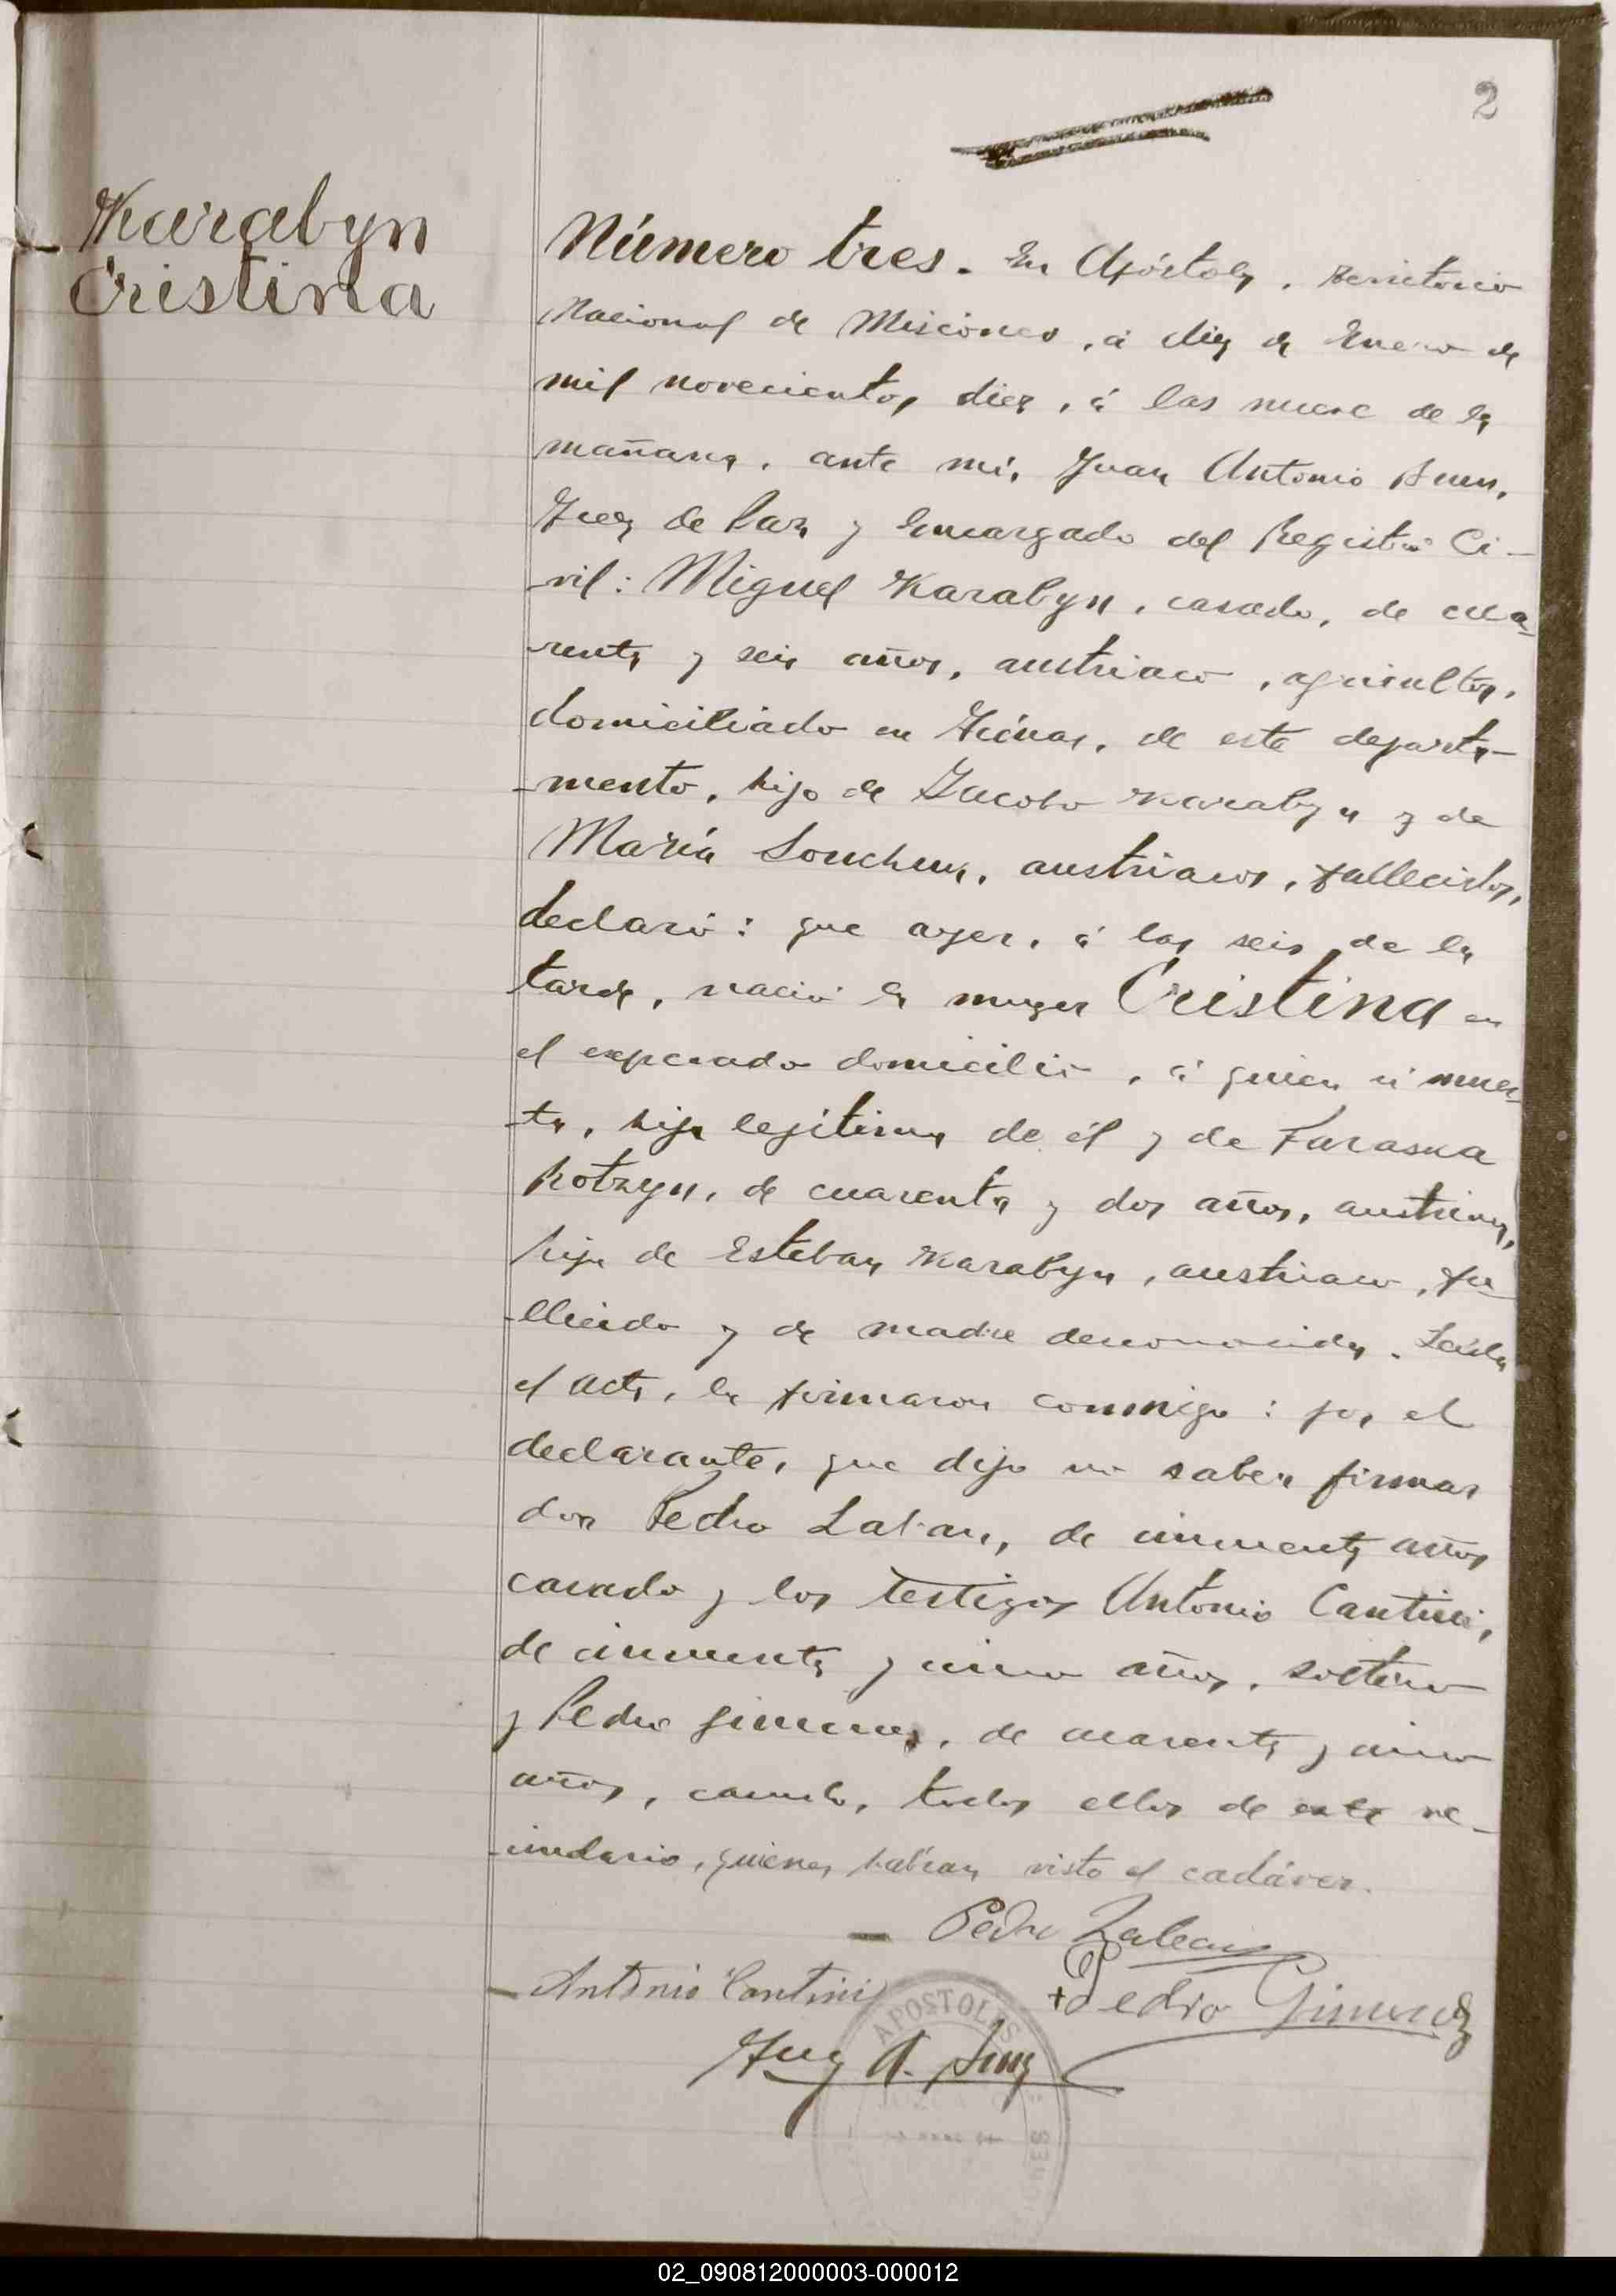 2
Karabyn
Cristina
Número tres. En Apóstoles, Territorio
Nacional de Misiones, á diez de Enero de
mil novecientos diez, á las nueve de la
mañana, ante mí, Juan Antonio
Juez de Paz y Encargado del Registro Ci-
vil: Miguel Karabyn, casado, de cua-
renta y seis años, austriaco, agricultor,
domiciliado en de este departa-
mento, hijo de Jacobo Karabyn y de
María austriacos, fallecidos,
declaró: que ayer, á las seis de la
tarde, nació la muger Cristina en
el expresado domicilio, á quien ví muer-
ta, hija legítima de él y de Paraska
de cuarenta y dos años, austriaca,
hija de Esteban Karabyn, austriaco, fa-
llecido y de madre desconocida. Leída
el acta, la firmaron conmigo: por el
declarante, que dijo no saber firmar
don Pedro de cincuenta años
casado y los testigos Antonio Cantini,
de cincuenta y cinco años, soltero
y Pedro Gimenez, de cuarenta y cinco
años, casado, todos ellos de este ve-
cindario, quienes habían visto el cadáver.
Pedro
Antonio Cantini
+Pedro Gimenez
APOSTOLES
02_090812000003-000012